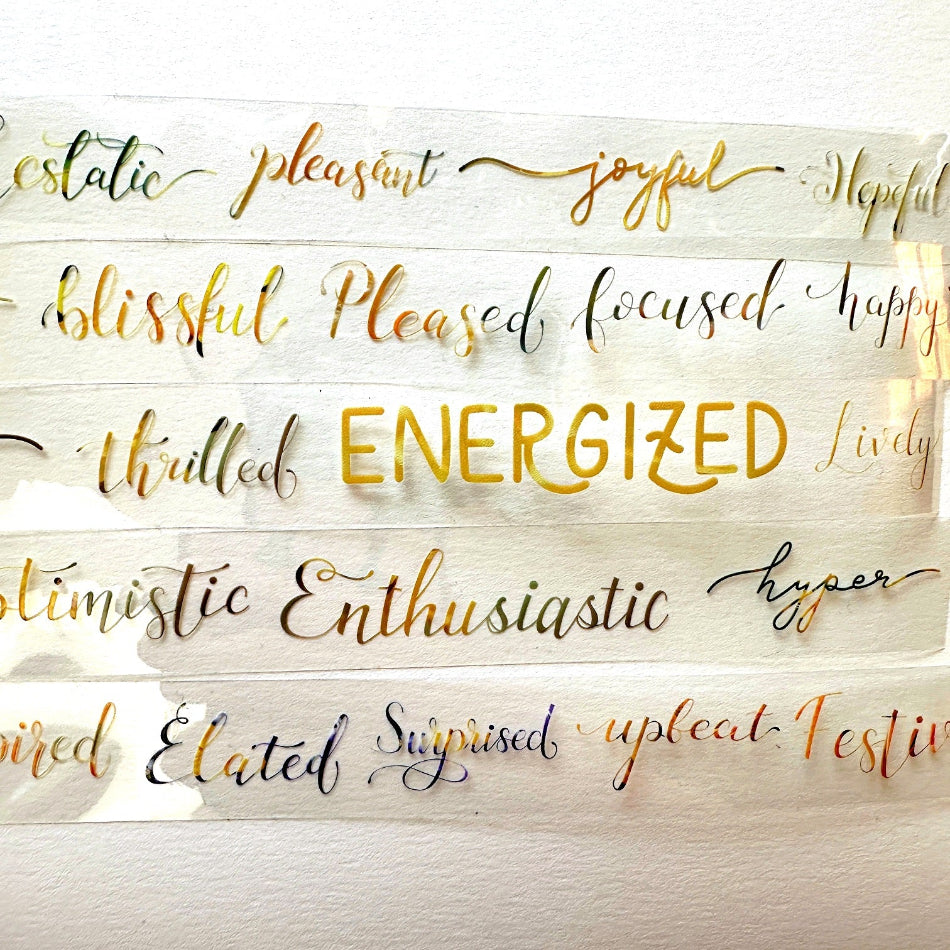 ecstatic pleasant joyful Hopeful
blissful Pleased focused happy
thrilled ENERGIZED Lively
timistic Enthusiastic hyper
pired Elated Surprised upbeat Festiv